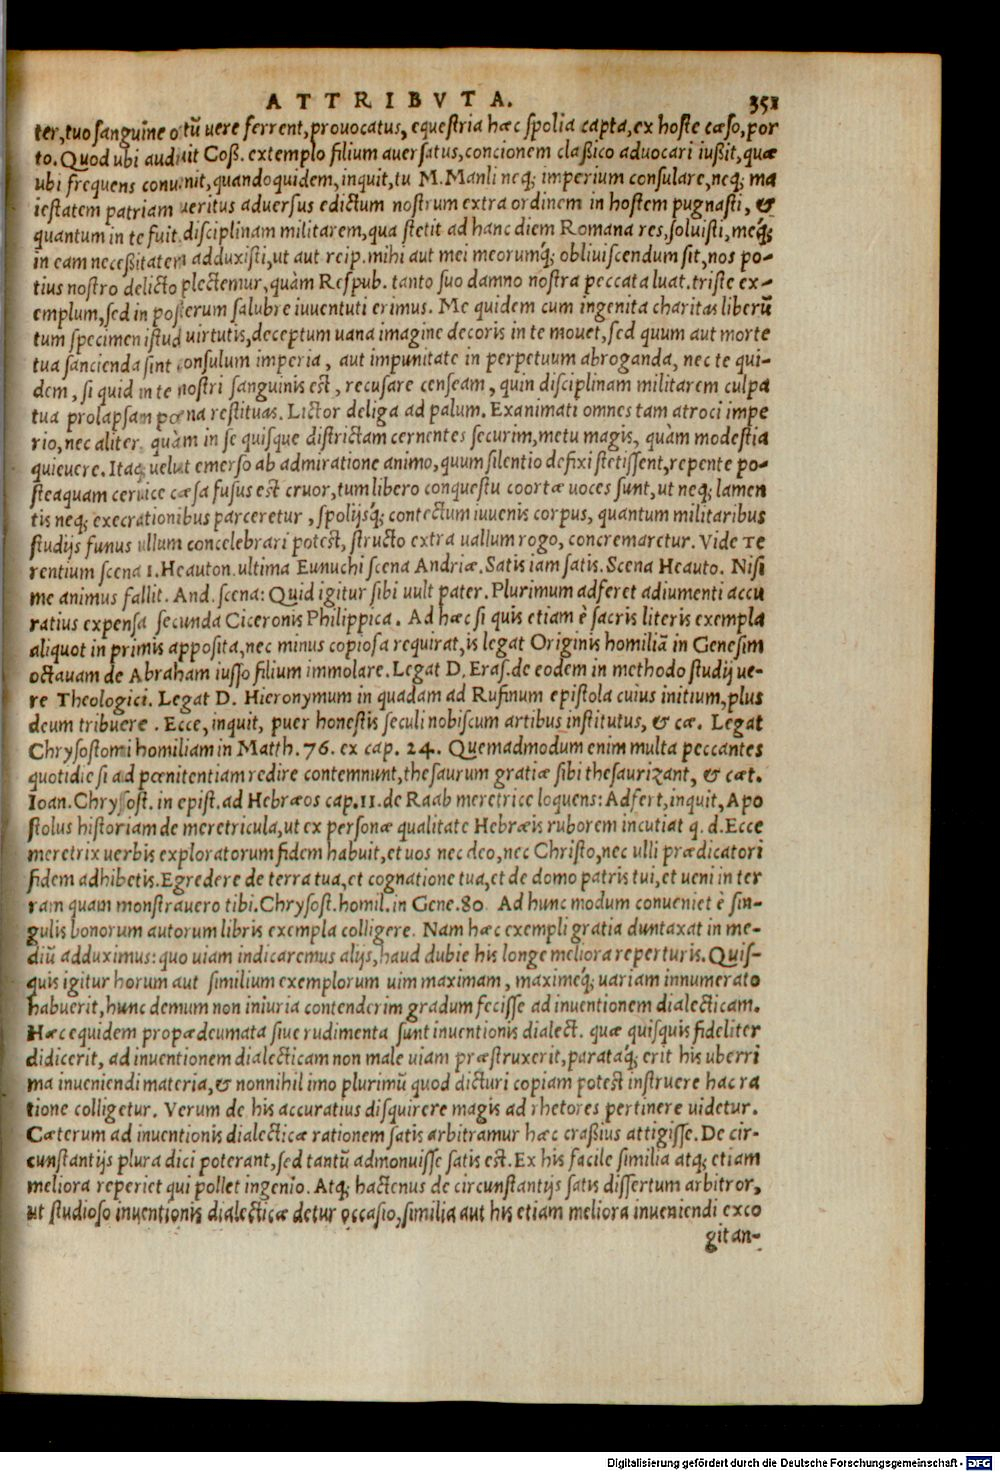 ATTRIBVTA. 351
ter, tuo sanguine ortū uere ferrent, prouocatus, equestria hæc spolia capta, ex hoste cæso, por
to. Quod ubi audiuit Coß. extemplo filium auersatus, concionem claßico aduocari iußit, quæ
ubi frequens conuenit, quandoquidem, inquit, tu M. Manli neq; imperium consulare, neq; ma
iestatem patriam ueritus aduersus edictum nostrum extra ordinem in hostem pugnasti, &
quantum in te fuit, disciplinam militarem, qua stetit ad hanc diem Romana res, soluisti, meq́;
in eam neceßitatem adduxisti, ut aut reip. mihi aut mei meorumq́; obliuiscendum sit, nos po-
tius nostro delicto plectemur, quàm Respub. tanto suo damno nostra peccata luat. triste ex-
emplum, sed in posterum salubre iuuentuti erimus. Me quidem cum ingenita charitas liberū
tum specimen istud uirtutis, deceptum uana imagine decoris in te mouet, sed quum aut morte
tua sancienda sint consulum imperia, aut impunitate in perpetuum abroganda, nec te qui-
dem, si quid in te nostri sanguinis est, recusare censeam, quin disciplinam militarem culpa
tua prolapsam pœna restituas. Lictor deliga ad palum. Exanimati omnes tam atroci impe
rio, nec aliter quàm in se quisque districtam cernentes securim, metu magis, quàm modestia
quieuere. Itaq; uelut emerso ab admiratione animo, quum silentio defixi stetissent, repente po-
steaquam ceruice cæsa fusus est cruor, tum libero conquestu coortæ uoces sunt, ut neq; lamen
tis neq; execrationibus parceretur, spolijsq́; contectum iuuenis corpus, quantum militaribus
studijs funus ullum concelebrari potest, structo extra uallum rogo, concremaretur. Vide Te
rentium scena 1. Heauton. ultima Eunuchi scena Andriæ. Satis iam satis. Scena Heauto. Nisi
me animus fallit. And. scena: Quid igitur sibi uult pater. Plurimum adferet adiumenti accu
ratius expensa secunda Ciceronis Philippica. Ad hæc si quis etiam è sacris literis exempla
aliquot in primis apposita, nec minus copiosa requirat, is legat Originis homiliā in Genesim
octauam de Abraham iusso filium immolare. Legat D. Eras. de eodem in methodo studij ue-
re Theologici. Legat D. Hieronymum in quadam ad Rufinum epistola cuius initium, plus
deum tribuere. Ecce, inquit, puer honestis seculi nobiscum artibus institutus, & cæ. Legat
Chrysostomi homiliam in Matth. 76. ex cap. 24. Quemadmodum enim multa peccantes
quotidie si ad pœnitentiam redire contemnunt, thesaurum gratiæ sibi thesaurizant, & cæt.
Ioan. Chrysost. in epist. ad Hebræos cap. 11. de Raab meretrice loquens: Adfert, inquit, Apo
stolus historiam de meretricula, ut ex personæ qualitate Hebræis ruborem incutiat q. d. Ecce
meretrix uerbis exploratorum fidem habuit, et uos nec deo, nec Christo, nec ulli prædicatori
fidem adhibetis. Egredere de terra tua, et cognatione tua, et de domo patris tui, et ueni in ter
ram quam monstrauero tibi. Chrysost. homil. in Gene. 80 Ad hunc modum conueniet è sin-
gulis bonorum autorum libris exempla colligere. Nam hæc exempli gratia duntaxat in me-
diū adduximus: quo uiam indicaremus alijs, haud dubie his longe meliora reperturis. Quis-
quis igitur horum aut similium exemplorum uim maximam, maximeq́; uariam innumerato
habuerit, hunc demum non iniuria contenderim gradum fecisse ad inuentionem dialecticam.
Hæc equidem propædeumata siue rudimenta sunt inuentionis dialect. quæ quisquis fideliter
didicerit, ad inuentionem dialecticam non male uiam præstruxerit, parataq́; erit his uberri
ma inueniendi materia, & nonnihil imo plurimū quod dicturi copiam potest instruere hac ra
tione colligetur. Verum de his accuratius disquirere magis ad rhetores pertinere uidetur.
Cæterum ad inuentionis dialecticæ rationem satis arbitramur hæc craßius attigisse. De cir-
cunstantijs plura dici poterant, sed tantū admonuisse satis est. Ex his facile similia atq; etiam
meliora reperiet qui pollet ingenio. Atq; hactenus de circunstantijs satis dissertum arbitror,
ut studioso inuentionis dialecticæ detur occasio, similia aut his etiam meliora inueniendi exco
gitan-
Digitalisierung gefördert durch die Deutsche Forschungsgemeinschaft - DFG